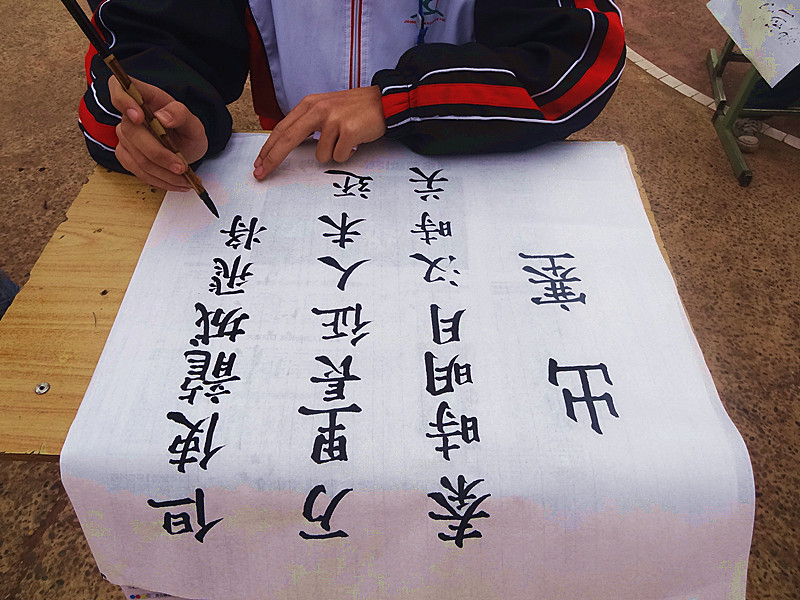 出塞
秦時明月汉時关
万里長征人未还
但使龍城飛将